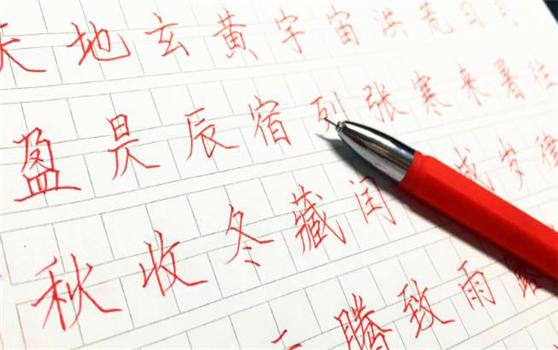 天地玄黄宇宙洪荒日月
盈昃辰宿列张寒来暑往
秋收冬藏闰成岁律
腾致雨露